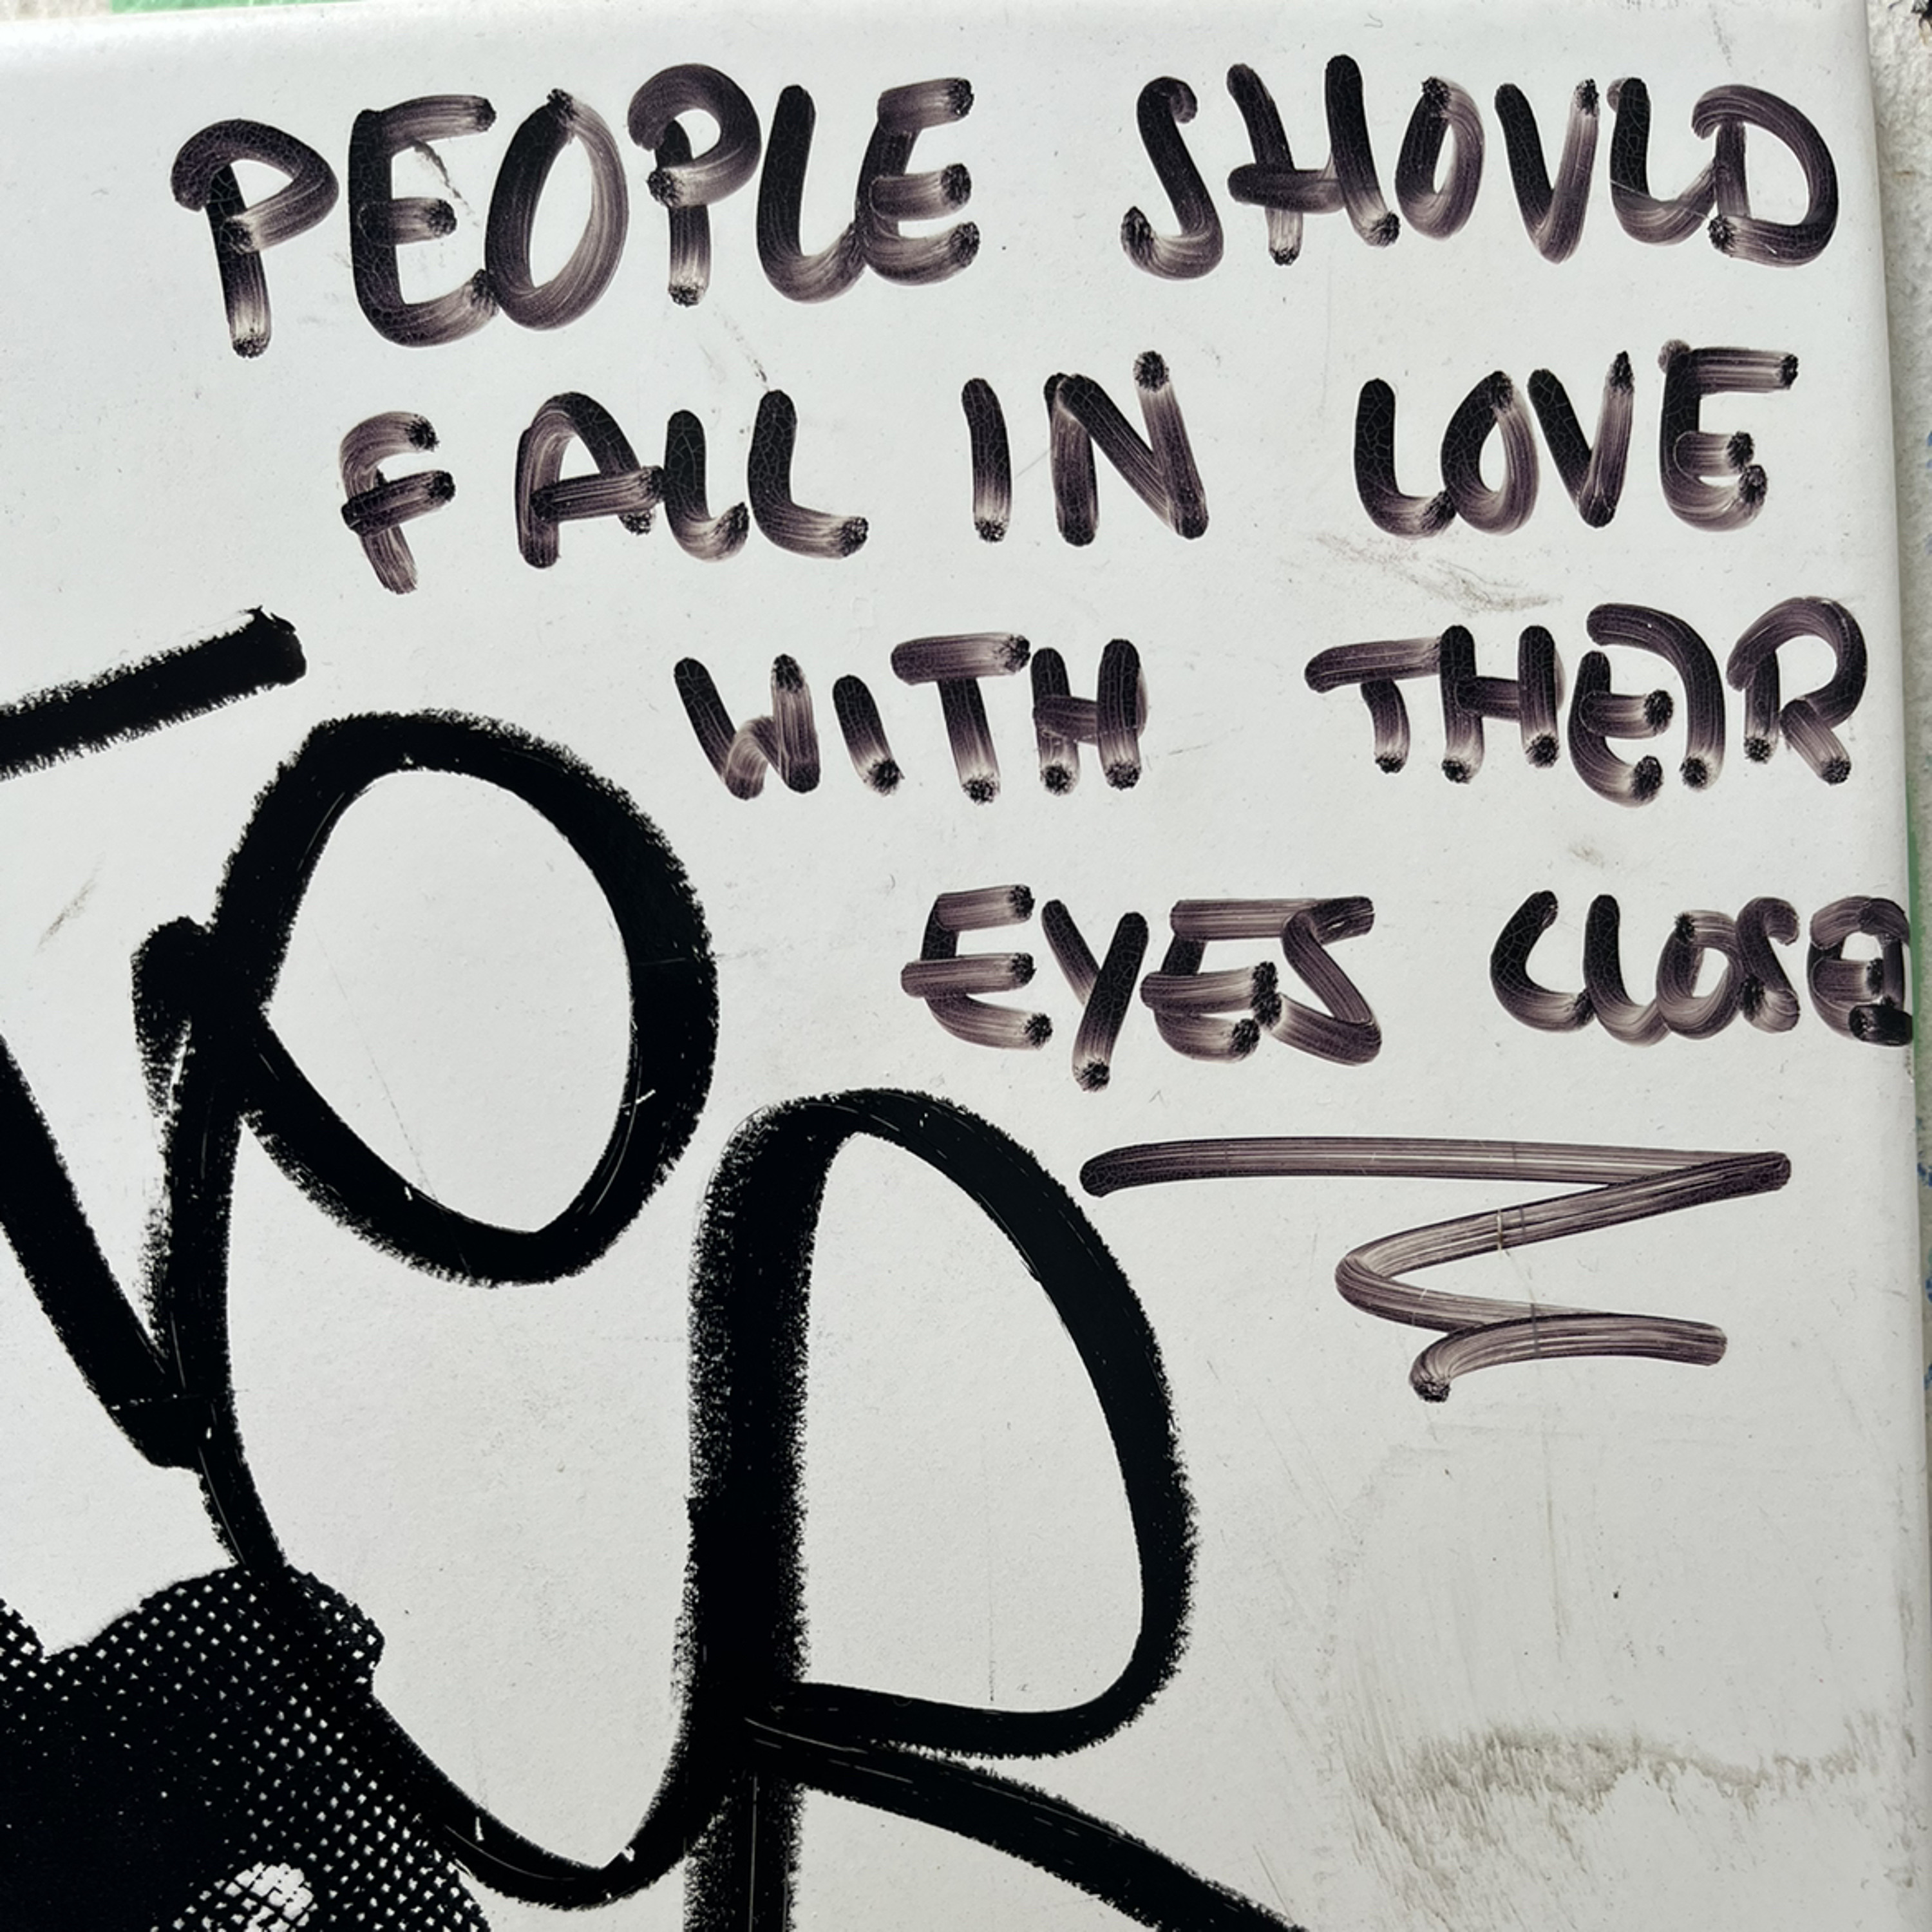 PEOPLE SHOULD
FALL IN LOVE
WITH THEIR
EYES CLOSED